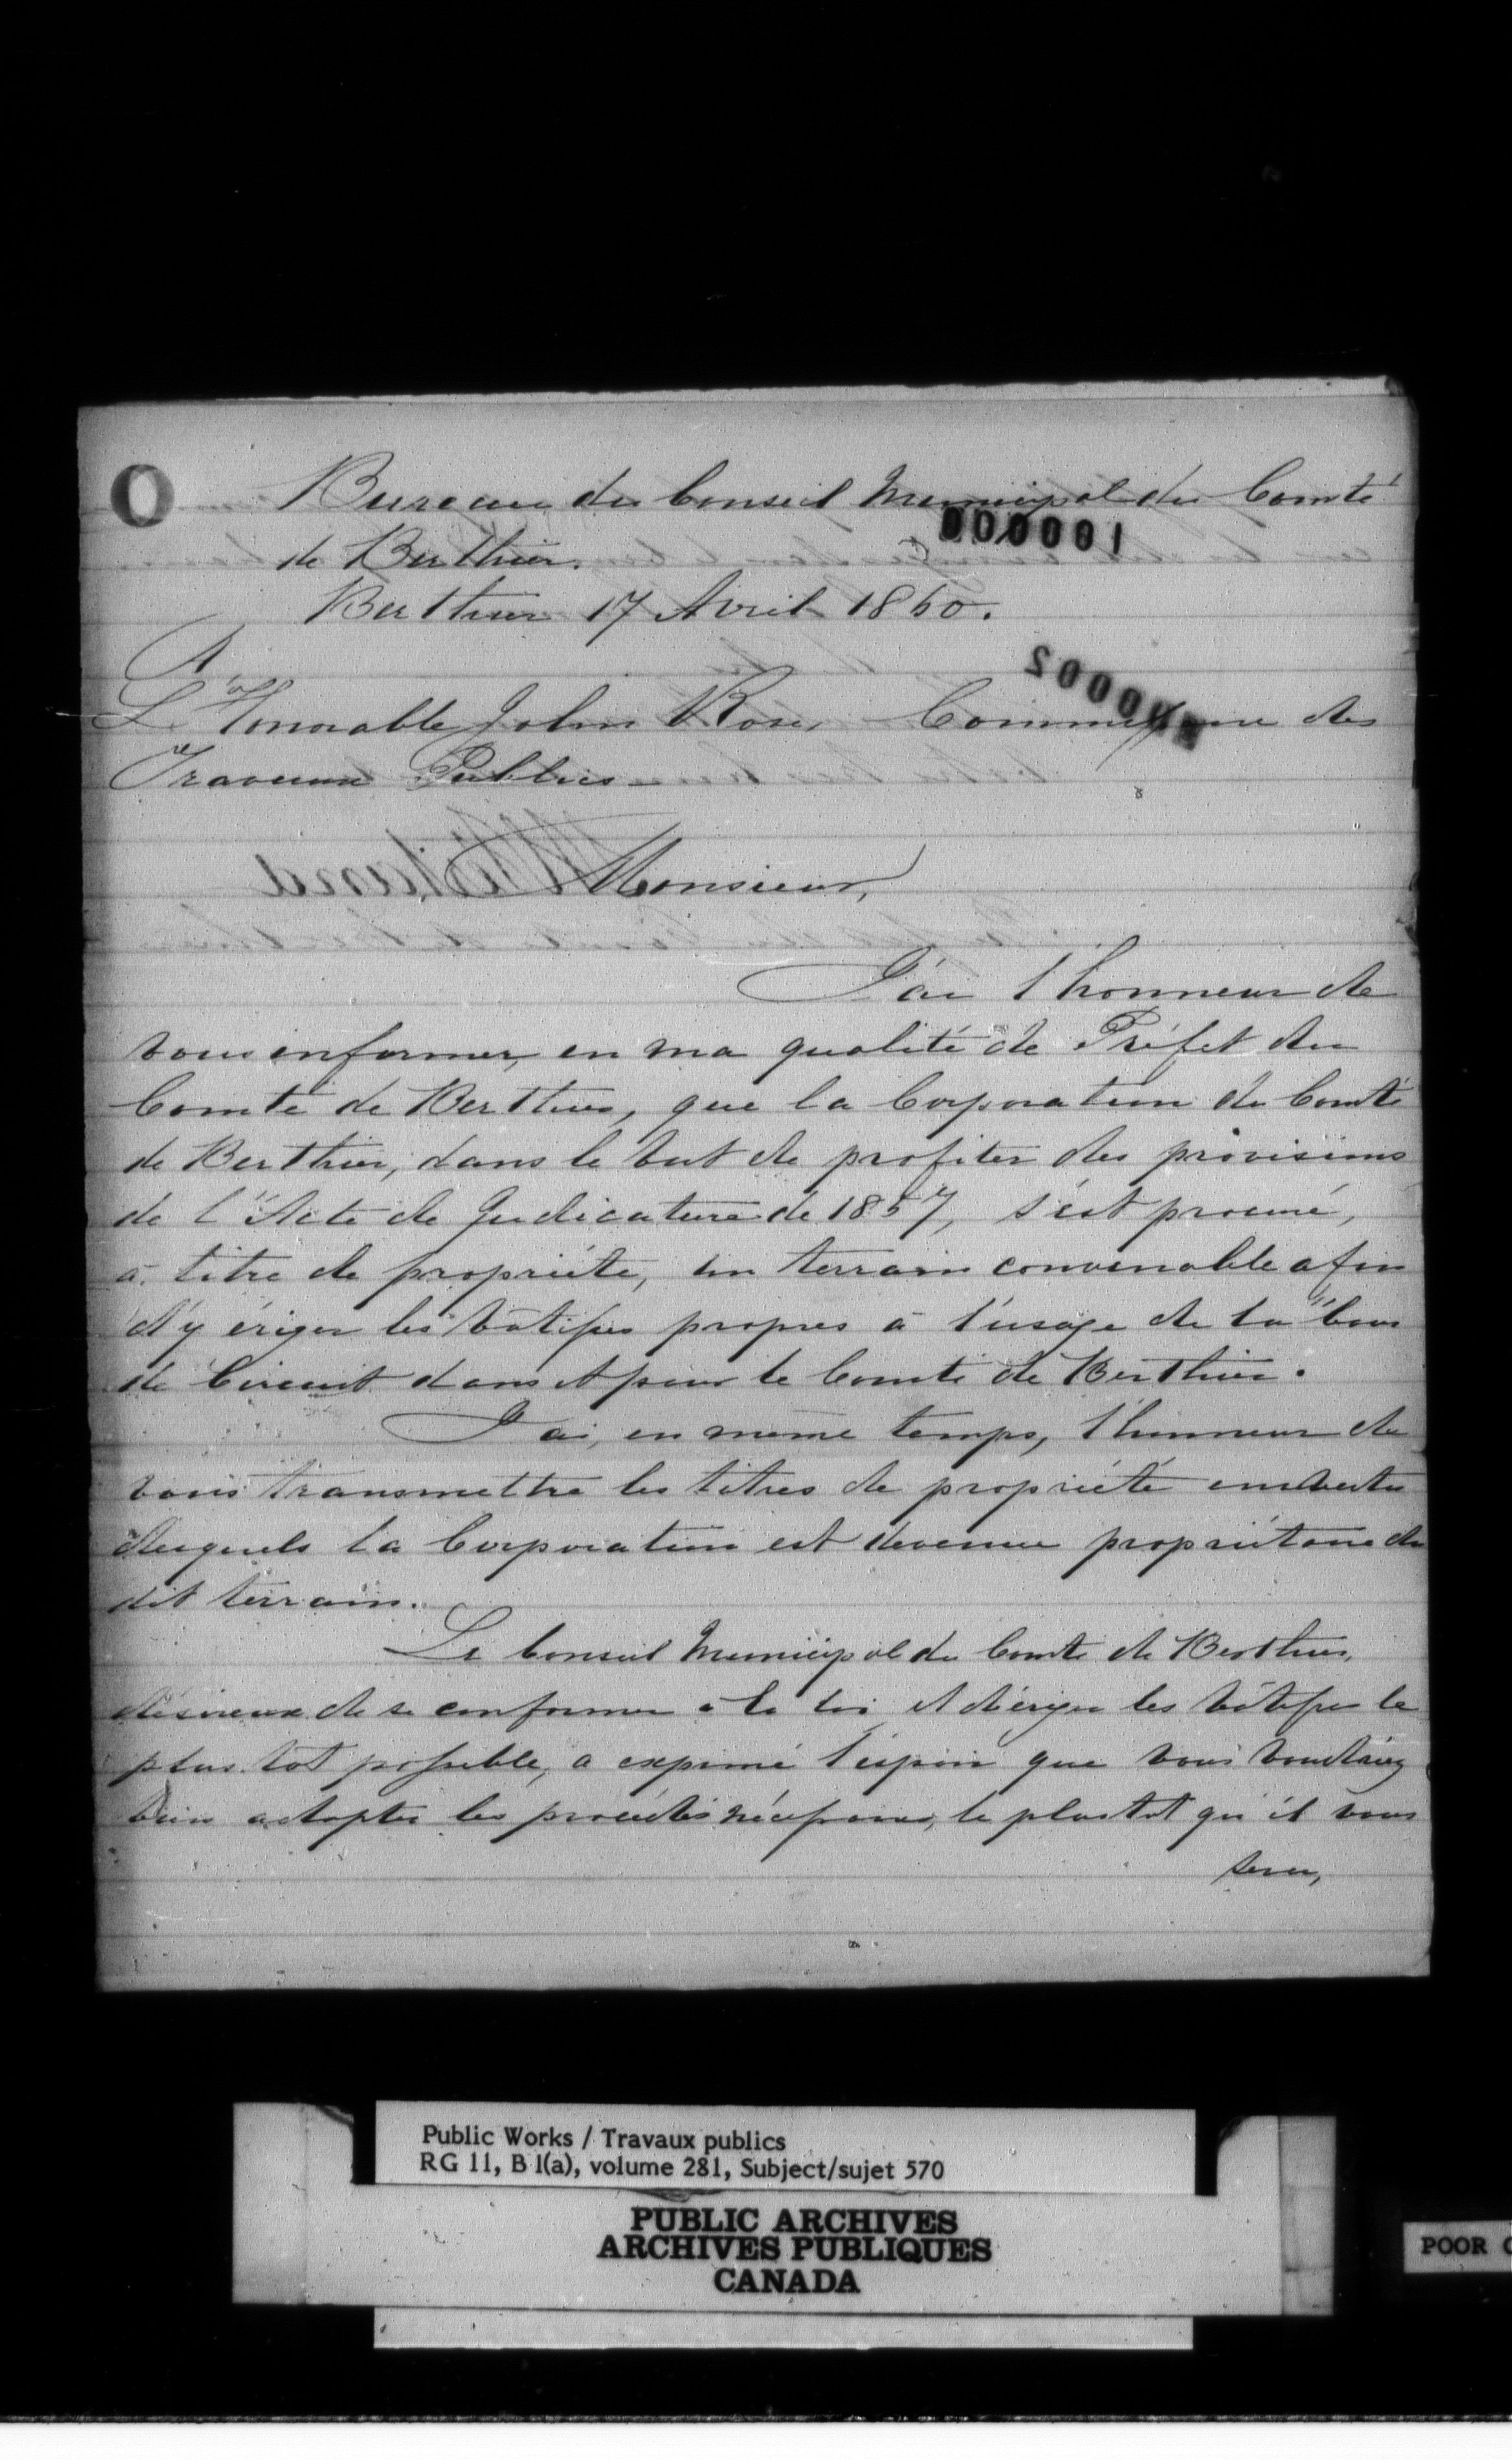 O
Bureau du Conseil Municipal du Comté
000001
de Berthier.
Berthier 17 Avril 1860.
A
000002
L'Honorable John Rose, Commissaire des
Travaux Publics
Monsieur,
J'ai l'honneur de
vous informer, en ma qualité de Préfet du
Comté de Berthier, que la Corporation du Comté
de Berthier, dans le but de profiter des provisions
de l'"Acte de Judicature de 1857, s'est procuré,
à titre de propriété, un terrain convenable afin
d'y ériger les bâtisses propres à l'usage de la "Cour
de Circuit dans et pour le Comté de Berthier.
J'ai, en même temps, l'honneur de
vous transmettre les titres de propriété en vertu
desquels la Corporation est devenue propriétaire du
dit terrain.
Le Conseil Municipal du Comté de Berthier,
désireux de se conformer à la loi et d'ériger les bâtisses le
plus tôt possible, a exprimé l'espoir que vous voudriez
bien adopter les procédés nécessaires, le plus tôt qu'il vous
sera,
Public Works / Travaux publics
RG 11, B 1(a), volume 281, Subject/sujet 570
PUBLIC ARCHIVES
ARCHIVES PUBLIQUES
CANADA
POOR